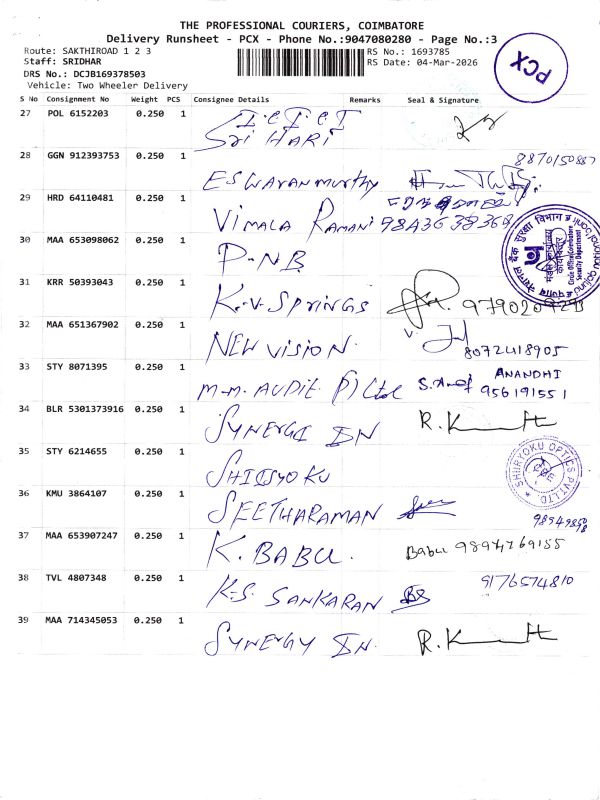 THE PROFESSIONAL COURIERS, COIMBATORE
Delivery Runsheet - PCX - Phone No.:9047080280 - Page No.:3
Route: SAKTHIROAD 1 2 3
RS No.: 1693785
Staff: SRIDHAR
RS Date: 04-Mar-2026
DRS No.: DCJB169378503
Vehicle: Two Wheeler Delivery
PCX
S No Consignment No Weight PCS Consignee Details Remarks Seal & Signature
27 POL 6152203 0.250 1
Sri HARI
28 GGN 912393753 0.250 1 ESWARANMURTHY
29 HRD 64110481 0.250 1 VIMALA RAMANI
30 MAA 653098062 0.250 1 P-NB
31 KRR 50393043 0.250 1 K.V-SPRINGS
32 MAA 651367902 0.250 1 NEW VISION. 8072418905
33 STY 8071395 0.250 1 M-M. AUDIT P) Ltd ANANDHI
956191551
34 BLR 5301373916 0.250 1 SYNERGI IN
35 STY 6214655 0.250 1
SHIRYOKU OPTICS PVT LTD
CBE
36 KMU 3864107 0.250 1 SEETHARAMAN
37 MAA 653907247 0.250 1 K. BABU. Babu
38 TVL 4807348 0.250 1 K.S. SANKARAN 9176574810
39 MAA 714345053 0.250 1 SYNERGY IN.